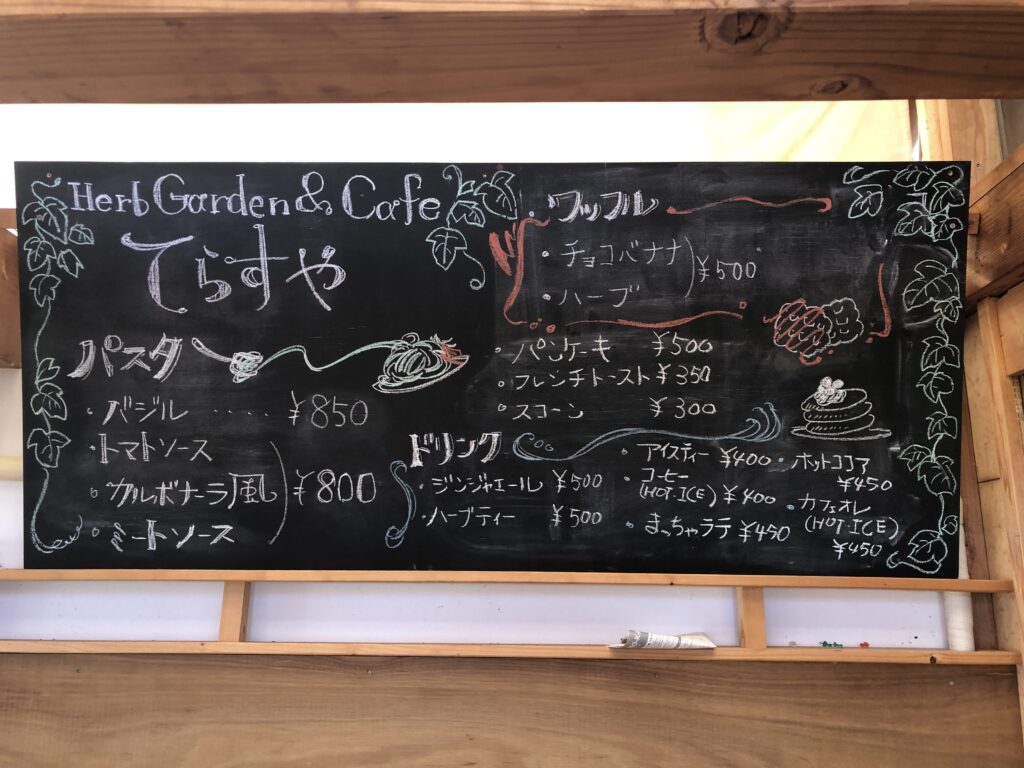 Herb Garden & Cafe
てらすや
パスタ
・バジル ‥‥ ¥850
・トマトソース
・カルボナーラ風
・ミートソース
¥800
・ワッフル
・チョコバナナ
・ハーブ
¥500
・パンケーキ ¥500
・フレンチトースト ¥350
・スコーン ¥300
ドリンク
・ジンジャエール ¥500
・ハーブティー ¥500
・アイスティー ¥400
・コーヒー
(HOT・ICE) ¥400
・まっちゃラテ ¥450
・ホットココア
¥450
・カフェオレ
(HOT・ICE)
¥450